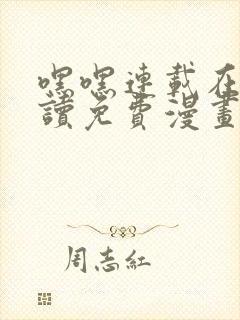 嘿嘿連載在
讀免費漫畫
周志紅